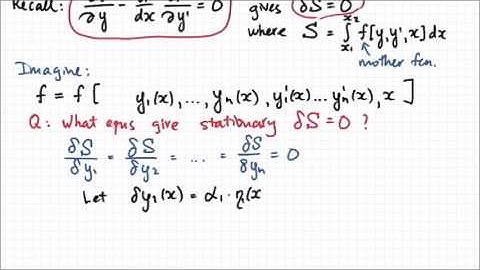 Recall: ∂f/∂y - d/dx ∂f/∂y' = 0 gives δS = 0
where S = ∫_{x₁}^{x₂} f[y, y', x] dx
mother fcn.
Imagine:
f = f [ y₁(x), ..., yₙ(x), y₁'(x) ... yₙ'(x), x ]
Q: What eqns give stationary δS = 0 ?
δS/δy₁ = δS/δy₂ = ... = δS/δyₙ = 0
Let δy₁(x) = α₁ · η₁(x